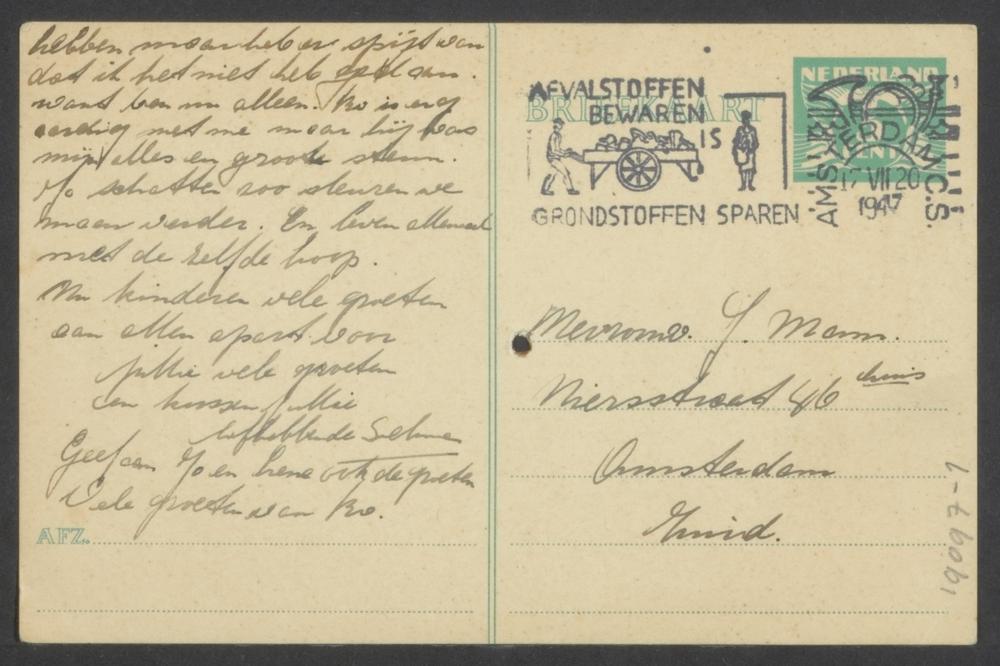 hebben maar heb er spijt van
dat ik het niet heb gedaan.
want ben nu alleen. Ko is erg
aardig met me maar hij was
mijn alles en groote steun.
Jo schatten zoo sleuren we
maar verder. En leven allemaal
met de zelfde hoop.
Nu kinderen vele groeten
aan allen apart. voor
jullie vele groeten
en kussen jullie
liefhebbende Selma
Geef aan Jo en Lena ook de groeten
Vele groeten van Ko.
AFZ.
BRIEFKAART
AFVALSTOFFEN
BEWAREN
IS
GRONDSTOFFEN SPAREN
NEDERLAND
CENT
AMSTERDAM C.S.
17 VII 20
194
Mevrouw. J. Mann.
Niersstraat 46 huis
Amsterdam
Zuid.